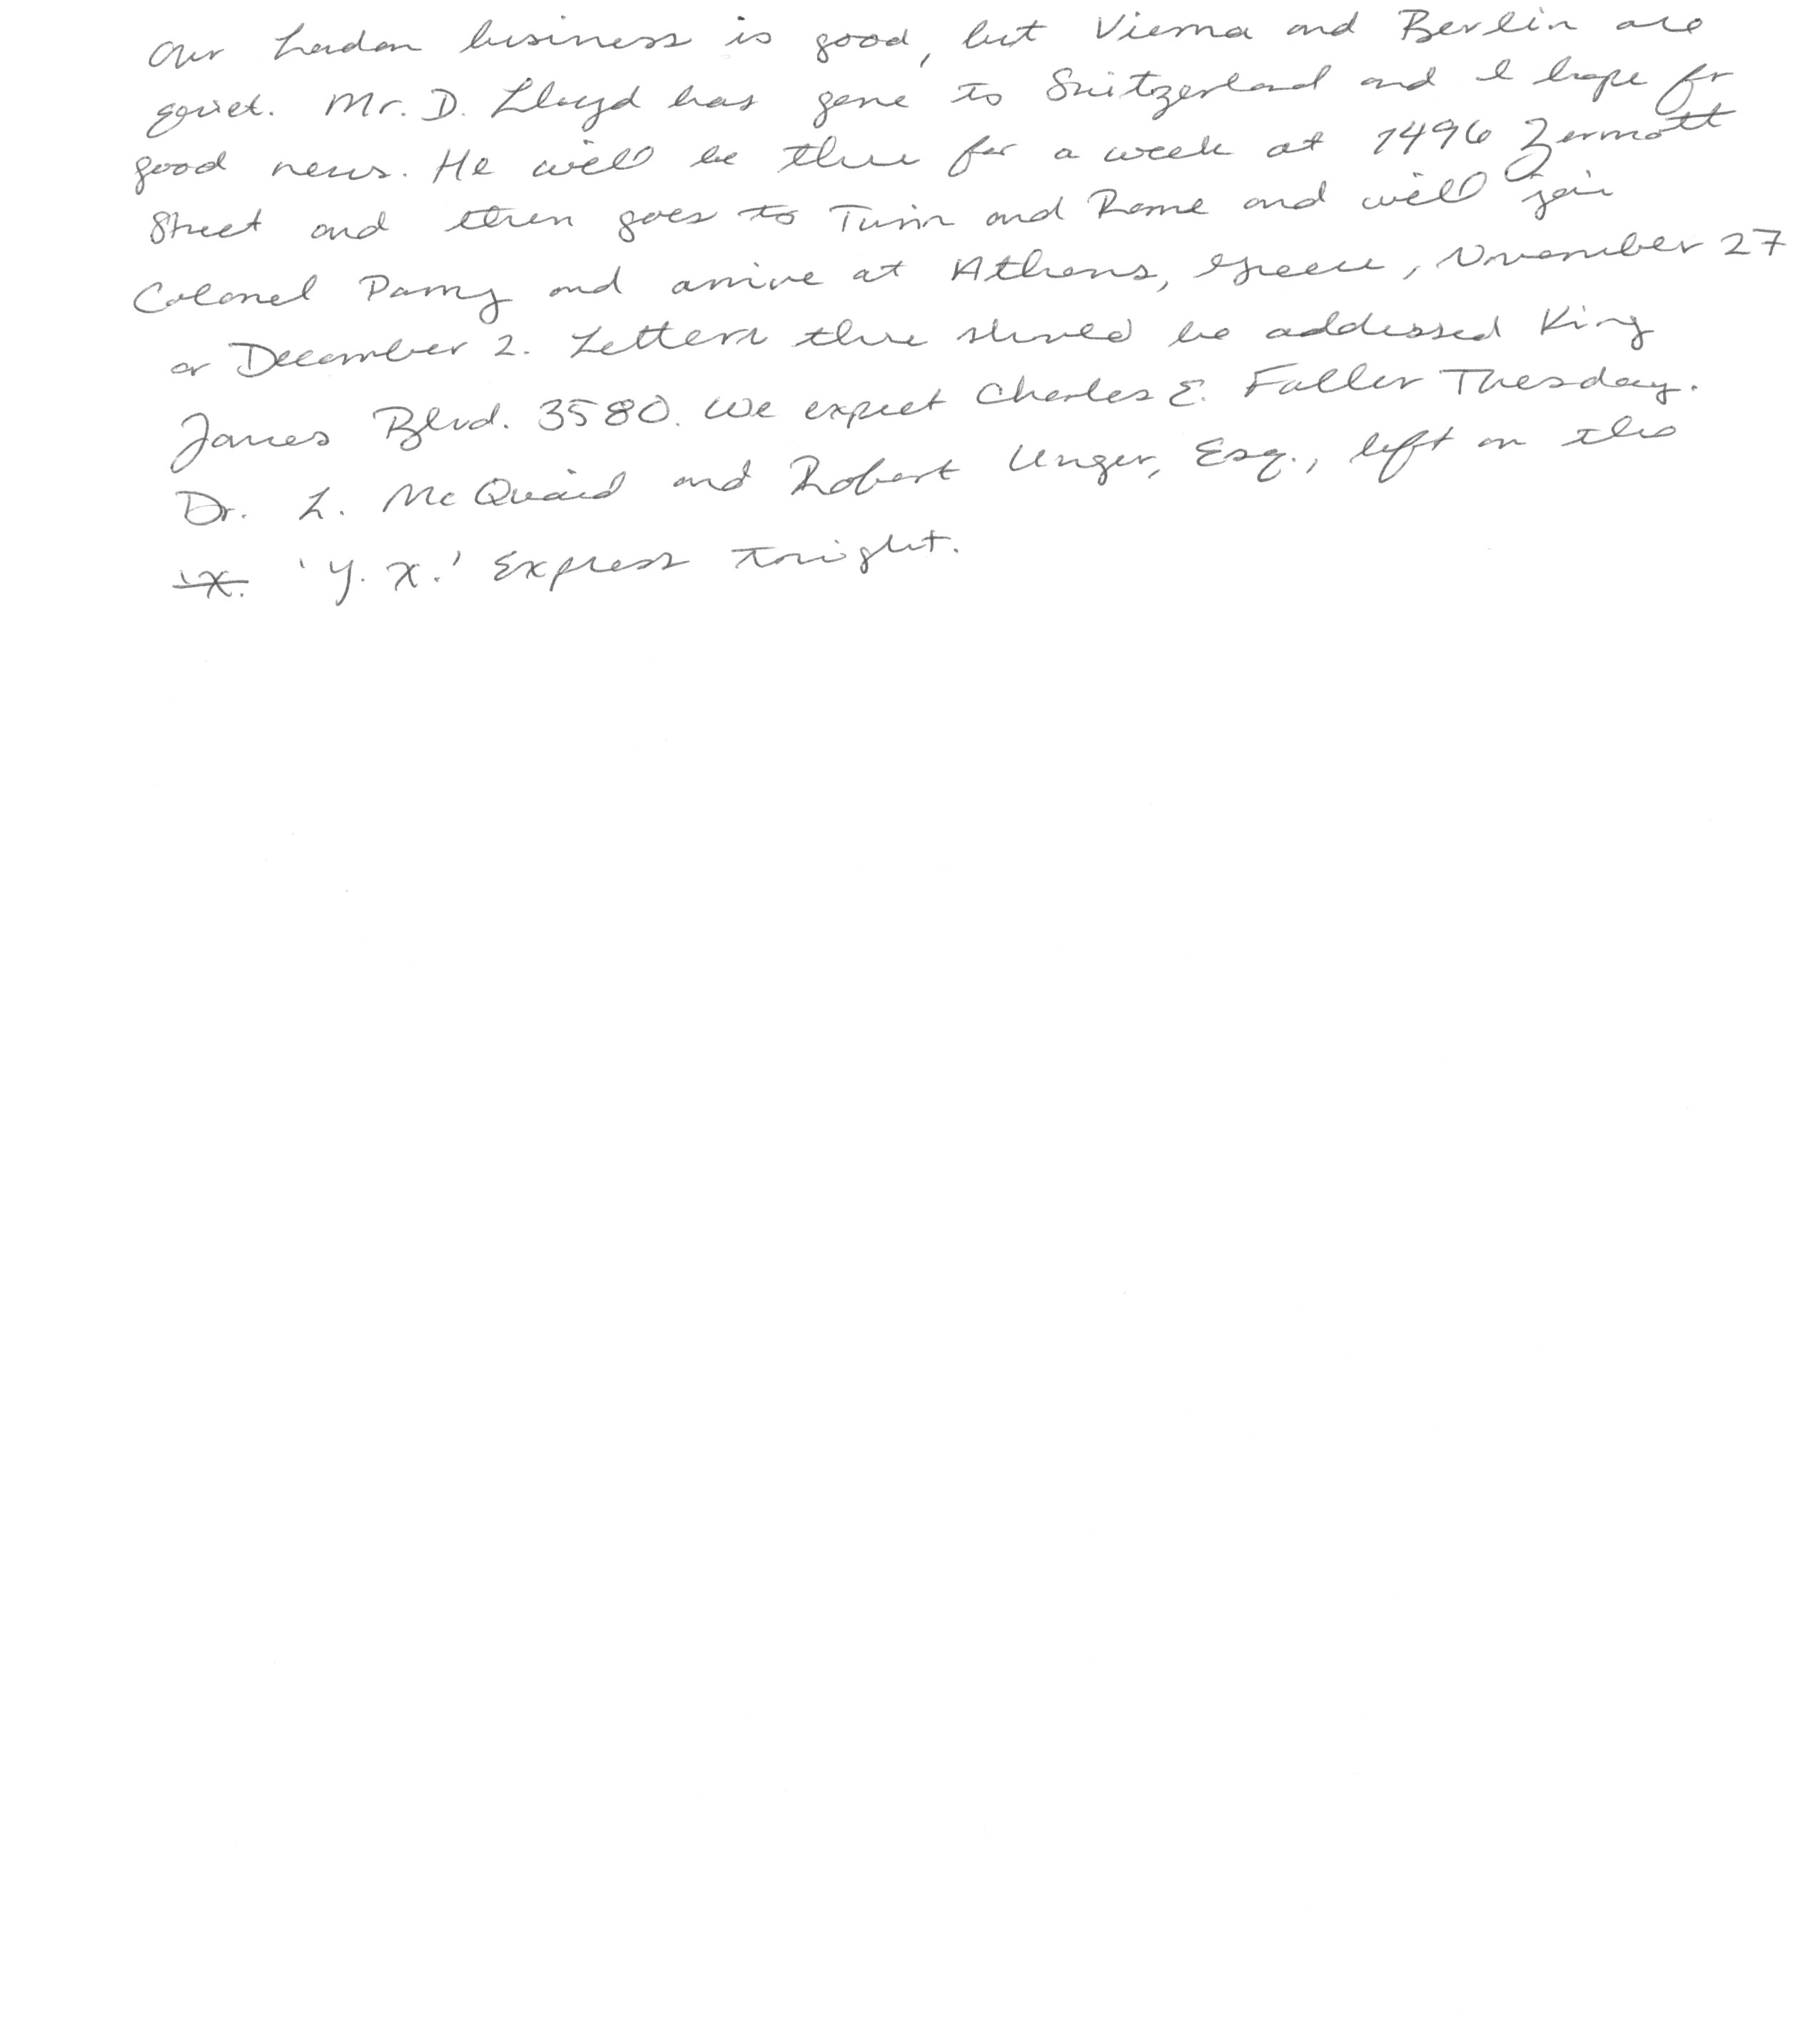 Our London business is good, but Vienna and Berlin are
quiet. Mr. D. Lloyd has gone to Switzerland and I hope for
good news. He will be there for a week at 1496 Zermott
Street and then goes to Turin and Rome and will join
Colonel Parry and arrive at Athens, Greece, November 27
or December 2. Letters there should be addressed King
James Blvd. 3580. We expect Charles E. Fuller Tuesday.
Dr. L. McQuaid and Robert Unger, Esq., left on the
'X. 'Y. X.' Express tonight.